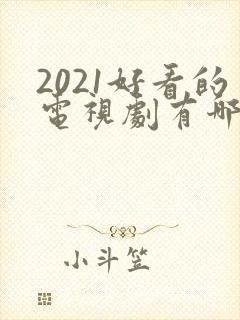 2021好看的
電視劇有哪
小斗笠